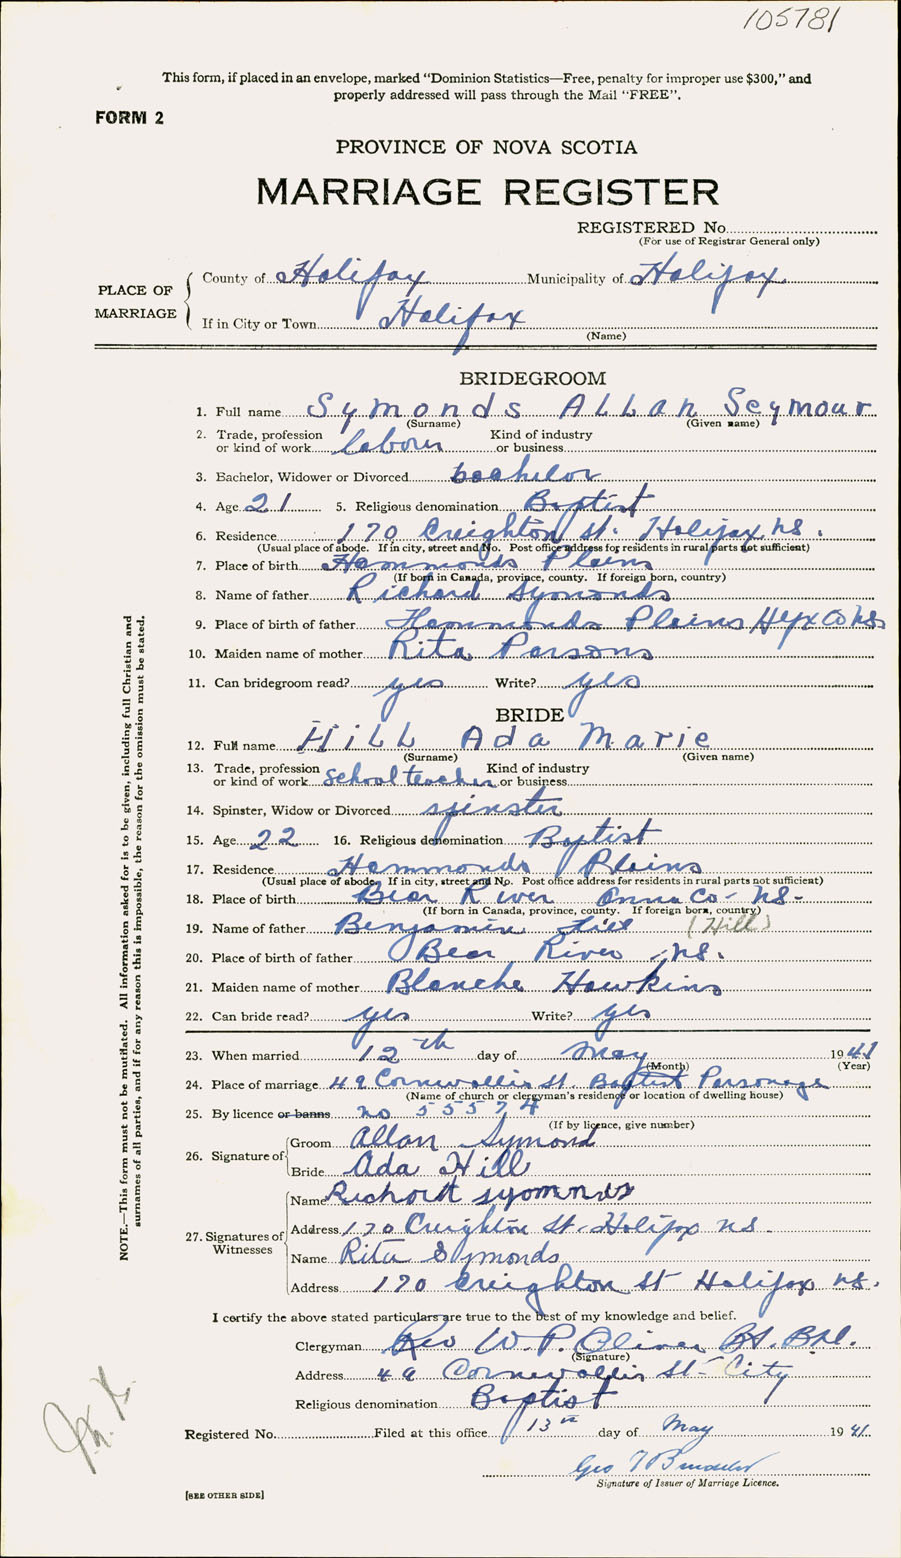 105781
This form, if placed in an envelope, marked “Dominion Statistics—Free, penalty for improper use $300,” and
properly addressed will pass through the Mail “FREE”.
FORM 2
PROVINCE OF NOVA SCOTIA
MARRIAGE REGISTER
REGISTERED No.
(For use of Registrar General only)
PLACE OF MARRIAGE
County of Halifax Municipality of Halifax
If in City or Town Halifax
(Name)
BRIDEGROOM
1. Full name Symonds Allan Seymour
(Surname) (Given name)
2. Trade, profession or kind of work labour Kind of industry or business
3. Bachelor, Widower or Divorced bachelor
4. Age 21 5. Religious denomination Baptist
6. Residence 170 Creighton St. Halifax NS.
(Usual place of abode. If in city, street and No. Post office address for residents in rural parts not sufficient)
7. Place of birth Hammonds Plains
(If born in Canada, province, county. If foreign born, country)
8. Name of father Richard Symonds
9. Place of birth of father Hammonds Plains Hfx Co NS.
10. Maiden name of mother Rita Parsons
11. Can bridegroom read? yes Write? yes
BRIDE
12. Full name Hill Ada Marie
(Surname) (Given name)
13. Trade, profession or kind of work school teacher Kind of industry or business
14. Spinster, Widow or Divorced spinster
15. Age 22 16. Religious denomination Baptist
17. Residence Hammonds Plains
(Usual place of abode. If in city, street and No. Post office address for residents in rural parts not sufficient)
18. Place of birth Bear River Anna Co- NS-
(If born in Canada, province, county. If foreign born, country)
19. Name of father Benjamin Hill (Hill)
20. Place of birth of father Bear River NS.
21. Maiden name of mother Blanche Hawkins
22. Can bride read? yes Write? yes
23. When married 12th day of May 1941
(Month) (Year)
24. Place of marriage 49 Cornwallis St. Baptist Parsonage
(Name of church or clergyman's residence or location of dwelling house)
25. By licence or banns no 55574
(If by licence, give number)
26. Signature of
Groom Allan Symond
Bride Ada Hill
27. Signatures of Witnesses
Name Richard Syomnds
Address 170 Creighton St. Halifax NS-
Name Rita Symonds
Address 170 Creighton St Halifax NS.
I certify the above stated particulars are true to the best of my knowledge and belief.
Clergyman Rev W. P. Oliver
(Signature)
Address 49 Cornwallis St- City
Religious denomination Baptist
Registered No. Filed at this office 13th day of May 1941.
Geo
Signature of Issuer of Marriage Licence.
[SEE OTHER SIDE]
NOTE.—This form must not be mutilated. All information asked for is to be given, including full Christian and
surnames of all parties, and if for any reason this is impossible, the reason for the omission must be stated.